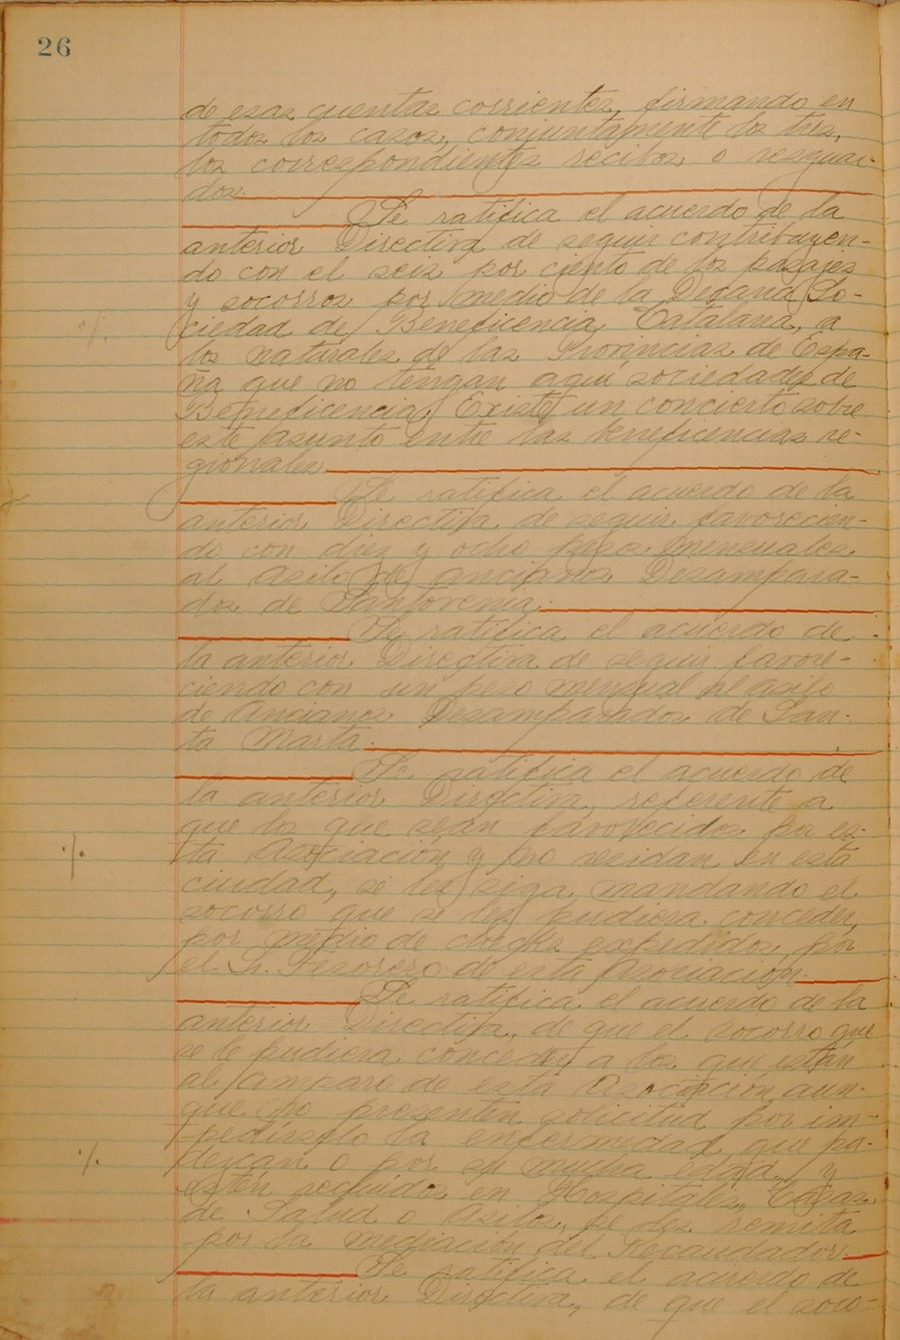 26
de esas cuentas corrientes, firmando en
todos los casos, conjuntamente los tres,
los correspondientes recibos o resguar-
dos.
Se ratifica el acuerdo de la
anterior Directiva de seguir contribuyen-
do con el seis por ciento de los pasajes
y socorros por medio de la Decana So-
ciedad de Beneficencia Catalana, a
los naturales de las Provincias de Espa-
ña que no tengan aquí sociedades de
Beneficencia. Existe un concierto sobre
este asunto entre las beneficencias re-
gionales.
Se ratifica el acuerdo de la
anterior Directiva de seguir favorecien-
do con diez y ocho pesos mensuales
al Asilo de Ancianos Desampara-
dos de Santovenia.
Se ratifica el acuerdo de
la anterior Directiva de seguir favore-
ciendo con un peso mensual al asilo
de Ancianos Desamparados de San-
ta Marta.
Se ratifica el acuerdo de
la anterior Directiva, referente a
que los que sean favorecidos por es-
ta Asociación y no residan en esta
ciudad, se les siga mandando el
socorro que se les pudiera conceder,
por medio de checks expedidos por
el Sr. Tesorero de esta Asociación.
Se ratifica el acuerdo de la
anterior Directiva, de que el socorro que
se le pudiera conceder a los que están
al amparo de esta Asociación aun-
que no presenten solicitud por im-
pedírselo la enfermedad que pa-
dezcan o por su mucha edad, y
estén recluídos en Hospitales, Casas
de Salud o Asilos, se les remita
por la mediación del Recaudador.
Se ratifica el acuerdo de
la anterior Directiva, de que el soco-